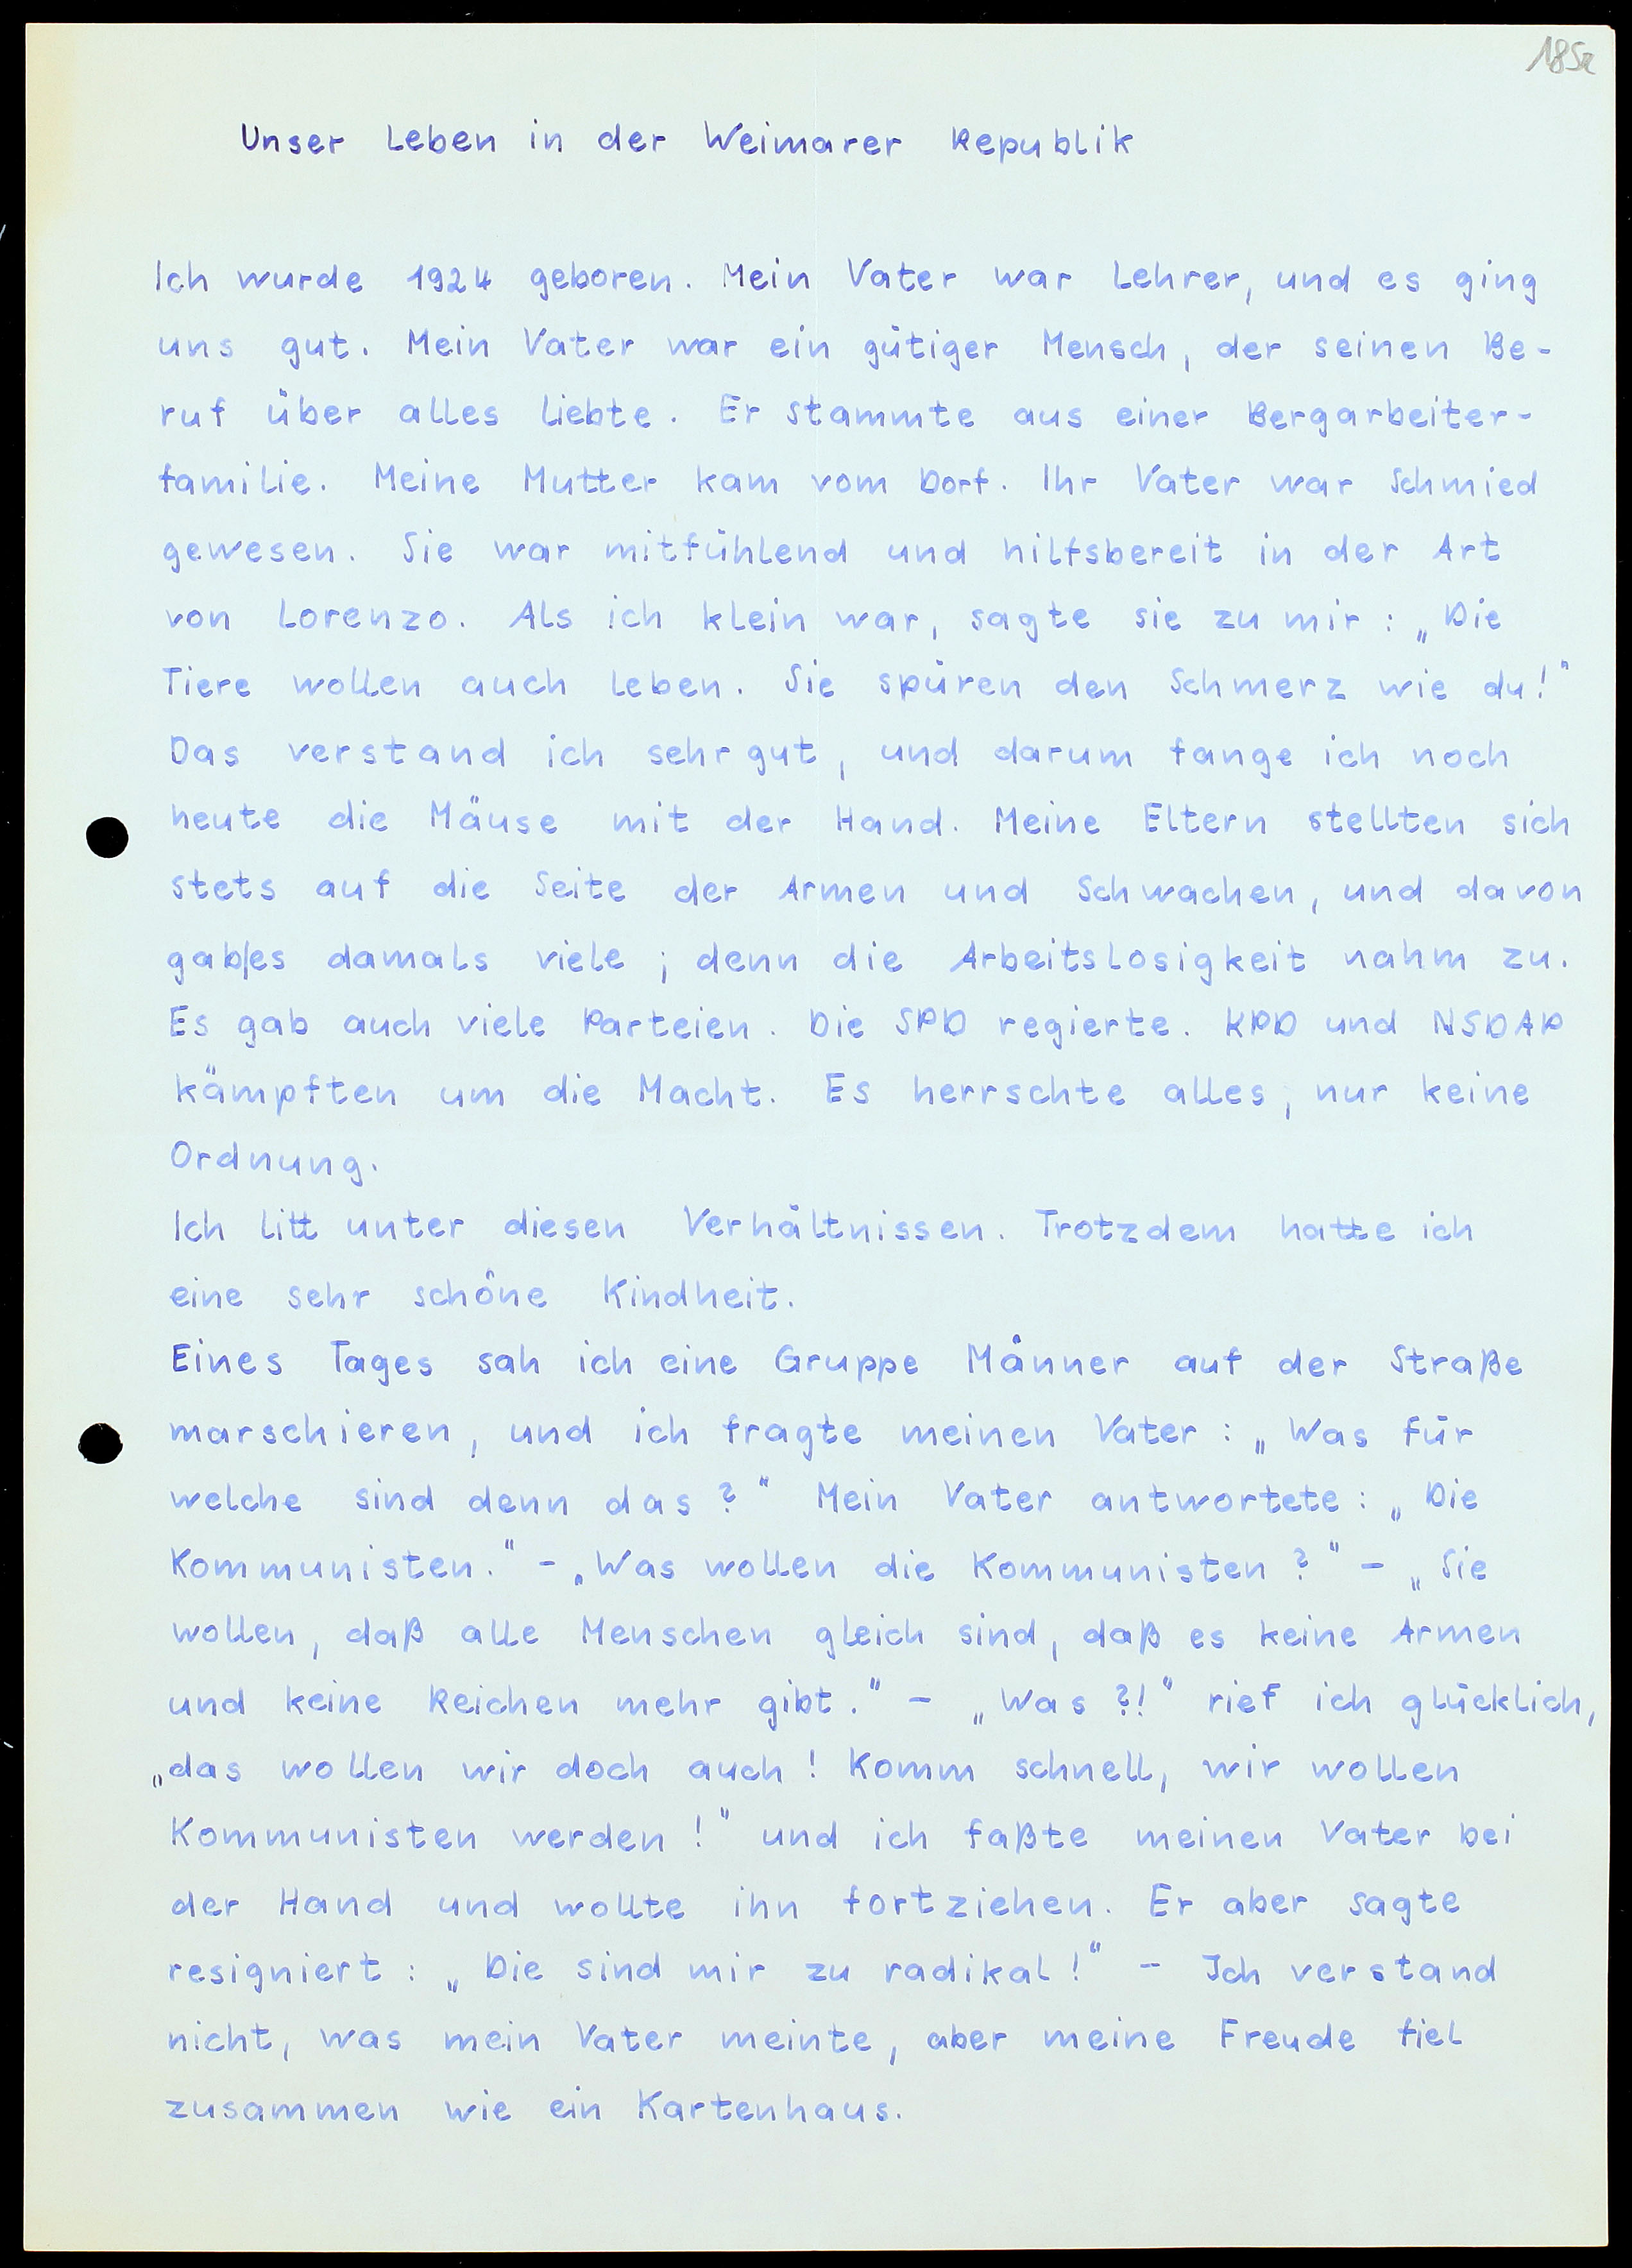 185a
Unser Leben in der Weimarer Republik
Ich wurde 1924 geboren. Mein Vater war Lehrer, und es ging
uns gut. Mein Vater war ein gütiger Mensch, der seinen Be-
ruf über alles liebte. Er stammte aus einer Bergarbeiter-
familie. Meine Mutter kam vom Dorf. Ihr Vater war Schmied
gewesen. Sie war mitfühlend und hilfsbereit in der Art
von Lorenzo. Als ich klein war, sagte sie zu mir: „Die
Tiere wollen auch leben. Sie spüren den Schmerz wie du!“
Das verstand ich sehr gut, und darum fange ich noch
heute die Mäuse mit der Hand. Meine Eltern stellten sich
stets auf die Seite der Armen und Schwachen, und davon
gab/es damals viele; denn die Arbeitslosigkeit nahm zu.
Es gab auch viele Parteien. Die SPD regierte. KPD und NSDAP
kämpften um die Macht. Es herrschte alles, nur keine
Ordnung.
Ich litt unter diesen Verhältnissen. Trotzdem hatte ich
eine sehr schöne Kindheit.
Eines Tages sah ich eine Gruppe Männer auf der Straße
marschieren, und ich fragte meinen Vater: „Was für
welche sind denn das?“ Mein Vater antwortete: „Die
Kommunisten.“ - „Was wollen die Kommunisten?“ - „Sie
wollen, daß alle Menschen gleich sind, daß es keine Armen
und keine Reichen mehr gibt.“ - „Was?!“ rief ich glücklich,
„das wollen wir doch auch! Komm schnell, wir wollen
Kommunisten werden!“ und ich faßte meinen Vater bei
der Hand und wollte ihn fortziehen. Er aber sagte
resigniert: „Die sind mir zu radikal!“ - Ich verstand
nicht, was mein Vater meinte, aber meine Freude fiel
zusammen wie ein Kartenhaus.